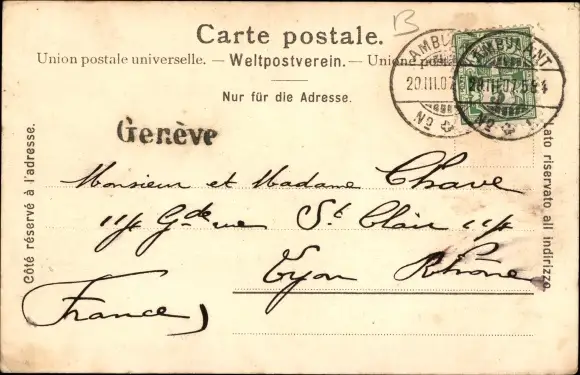 B
Carte postale.
Union postale universelle. — Weltpostverein. — Unione
Nur für die Adresse.
AMBULANT
20.III.07
AMBULANT
20.III.07
Genève
Côté réservé à l'adresse.
Lato riservato all indirizzo.
Monsieur et Madame Chave
Gde rue St Clair
Lyon Rhône
France